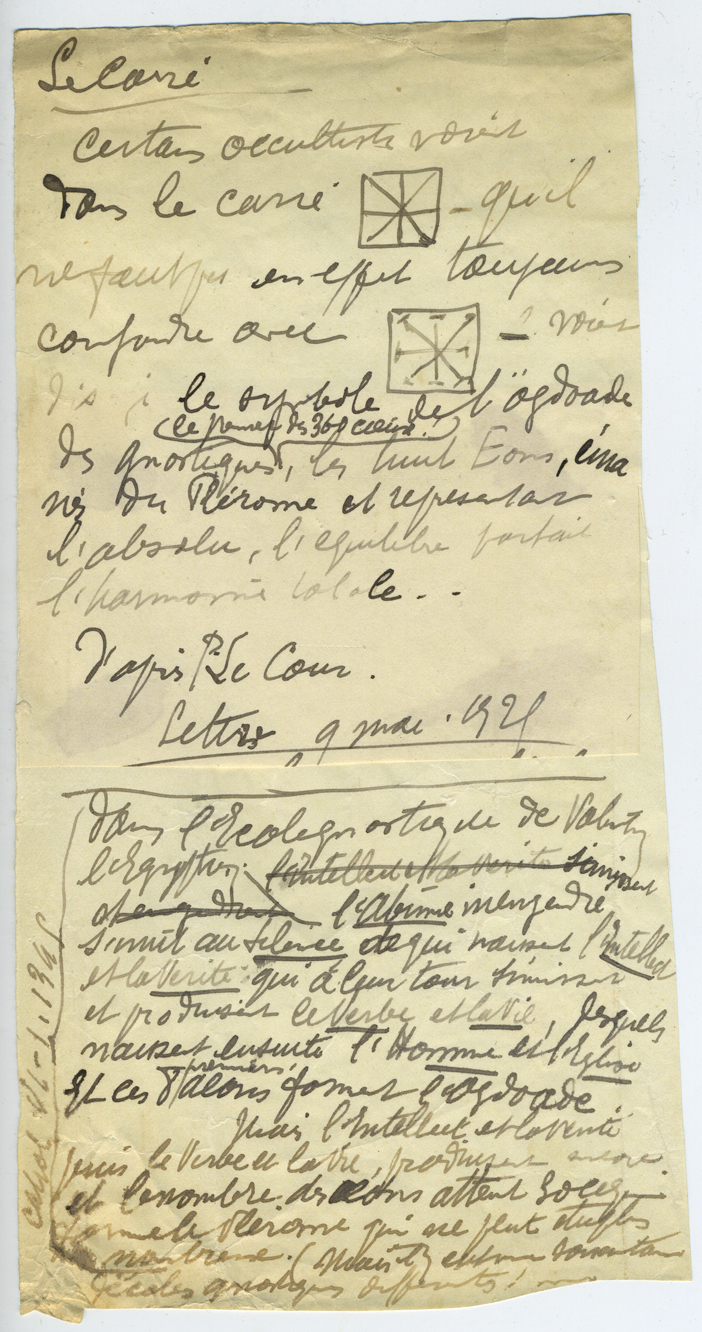 Le Carré
Certains occultistes voient
dans le carré - qu'il
ne faut pas en effet toujours
confondre avec - voient
dis-je le symbole de l'ôgdoade
(le premier des 360 cieux)
des gnostiques, les huit Eons, éma
nés du Plérome et représentant
l'absolu, l'équilibre parfait
l'harmonie totale..
D'après P. Le Cour.
Lettre 9 mai 192
Dans l'Ecole gnostique de Valentin
l'Egyptien l'Intellect et la Vérité s'unissent
et engendrent l'Abîme inengendré
s'unit au Silence de qui naissent l'Intellect
et la Vérité qui à leur tour s'unissent
et produisent le Verbe et la Vie, desquels
naissent ensuite l'Homme et l'Eglise
Et ces 8 premiers éons forment l'ogdoade.
Puis l'Intellect et la Vérité
puis le Verbe et la Vie, produisent encore
et le nombre des éons atteint 30 ce qui
forme le Plérome qui ne peut être plus
nombreux. (Mais il y eut une soixantaine
d'écoles gnostiques différentes!